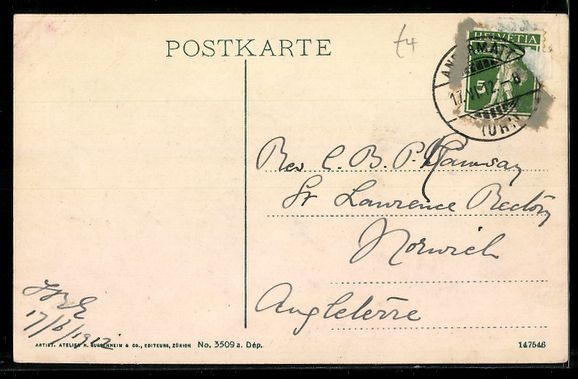 POSTKARTE
£4
HELVETIA
5
ANDERMATT
17.VI.12.-8
(URI)
Rev C. B. P. Ramsay
St Lawrence Rectory
Norwich
Angleterre
17/6/1912
ARTIST. ATELIER H. GUGGENHEIM & CO., EDITEURS, ZÜRICH No. 3509 a. Dép.
147546